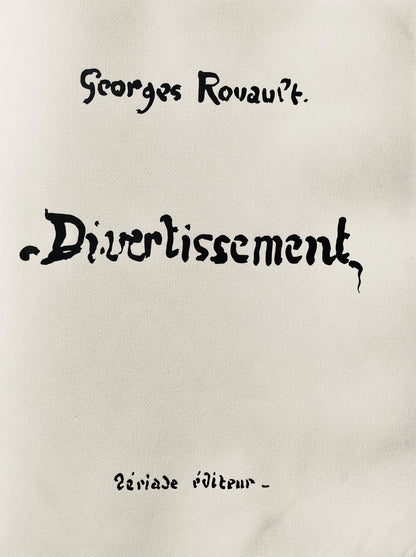 Georges Rouault.
Divertissement
Tériade éditeur -